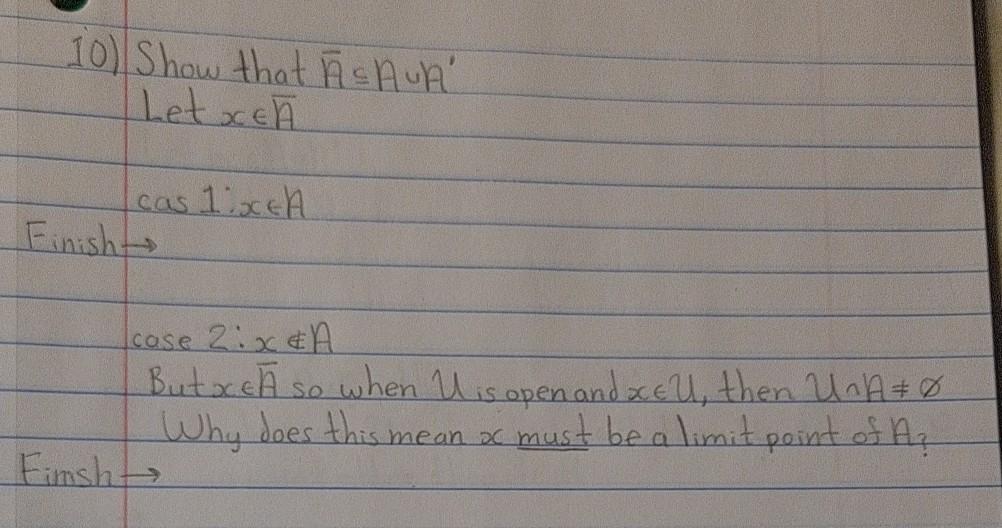 10) Show that Ā ⊆ A ∪ A'
Let x ∈ Ā
cas 1: x ∈ A
Finish →
case 2: x ∉ A
But x ∈ Ā so when U is open and x ∈ U, then U ∩ A ≠ ∅
Why does this mean x must be a limit point of A?
Finish →